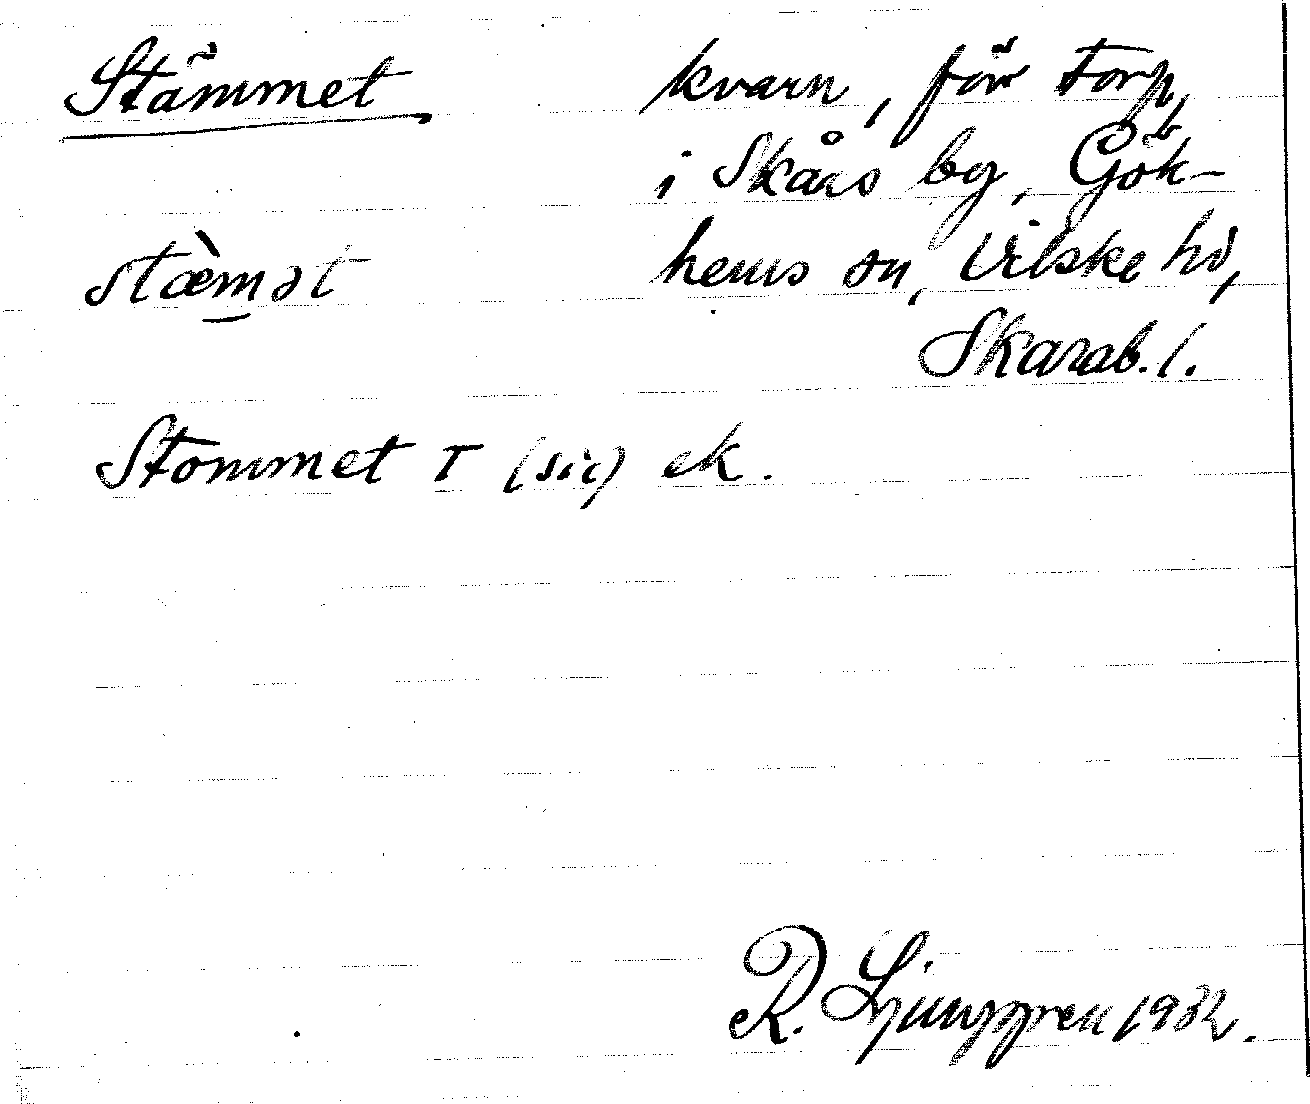 Stämmet
kvarn, förr torp,
i Skårs by, Gök-
hems sn, Vilske hd,
Skarab. l.
stæ̀mət
Stommet T (sic) ek.
R. Ljunggren 1932.